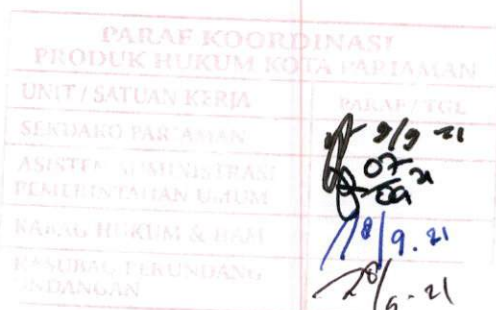 PARAF KOORDINASI
PRODUK HUKUM KOTA PARIAMAN
UNIT / SATUAN KERJA PARAF / TGL
SEKDAKO PARIAMAN 9/9 - 21
ASISTEN ADMINISTRASI 07
PEMERINTAHAN UMUM 09 21
KABAG HUKUM & HAM 8/9 . 21
KASUBAG PERUNDANG 8/9 - 21
UNDANGAN